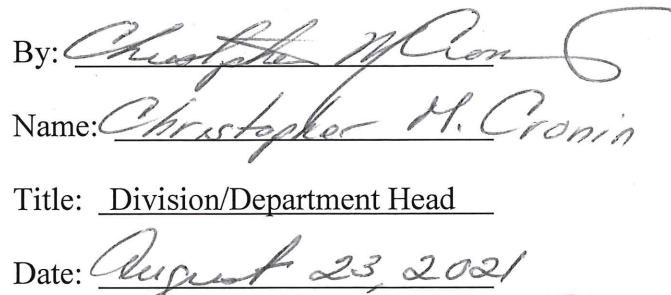 By: Christopher M Cronin
Name: Christopher M. Cronin
Title: Division/Department Head
Date: August 23, 2021